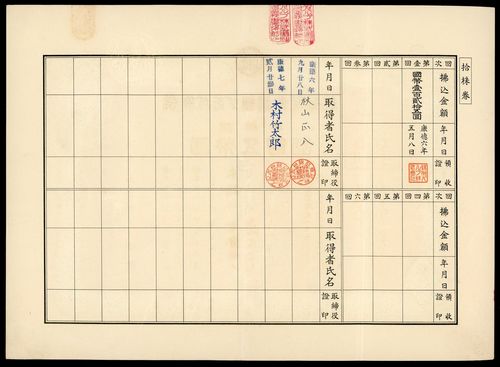 拾株券
回次 壹第回 貳第回 參第回
拂込金額 國幣壹百貳拾五圓
年月日 康德六年五月八日
領收證印
回次 四第回 五第回 六第回
拂込金額
年月日
領收證印
年月日 取得者氏名 取締役證印
康德六年九月廿八日
康德七年貳月廿四日 木村竹太郎
年月日 取得者氏名 取締役證印